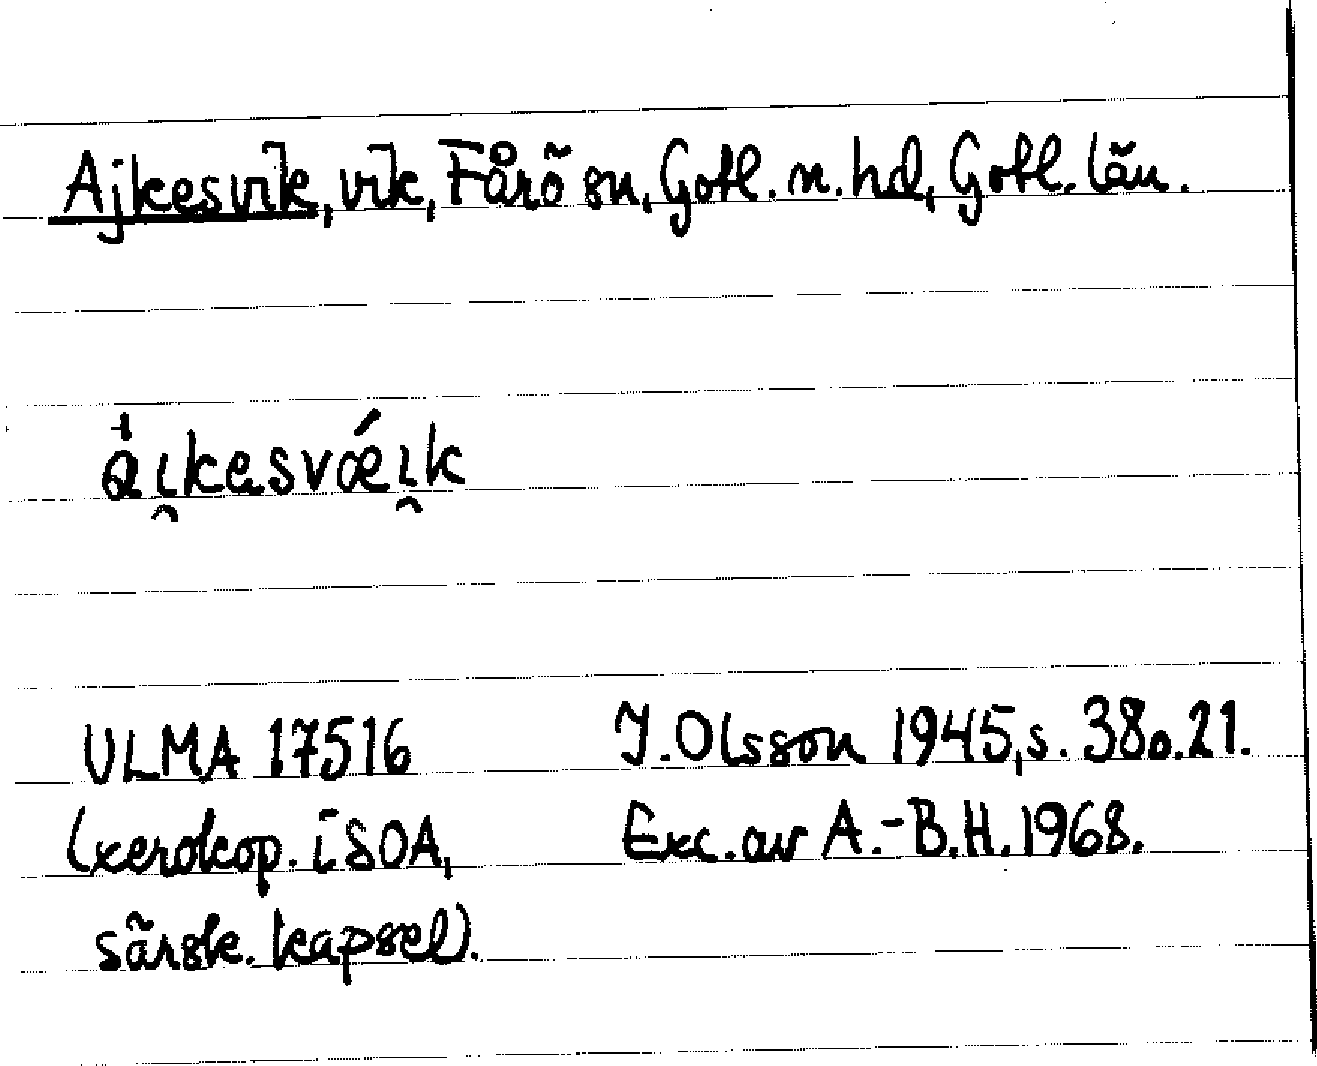 Ajkesvik, vik, Fårö sn, Gotl. n. hd, Gotl. län.
ȧı̯kesvǽı̯k
ULMA 17516 J. Olsson 1945, s. 38 o. 21.
(xerokop. i SOA, Exc. av A.-B.H. 1968.
särsk. kapsel).